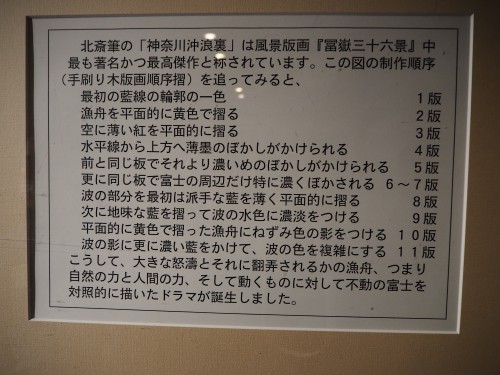 北斎筆の「神奈川沖浪裏」は風景版画『冨嶽三十六景』中
最も著名かつ最高傑作と称されています。この図の制作順序
（手刷り木版画順序摺）を追ってみると、
最初の藍線の輪郭の一色 1版
漁舟を平面的に黄色で摺る 2版
空に薄い紅を平面的に摺る 3版
水平線から上方へ薄墨のぼかしがかけられる 4版
前と同じ板でそれより濃いめのぼかしがかけられる 5版
更に同じ板で富士の周辺だけ特に濃くぼかされる 6～7版
波の部分を最初は派手な藍を薄く平面的に摺る 8版
次に地味な藍を摺って波の水色に濃淡をつける 9版
平面的に黄色で摺った漁舟にねずみ色の影をつける 10版
波の影に更に濃い藍をかけて、波の色を複雑にする 11版
こうして、大きな怒濤とそれに翻弄されるかの漁舟、つまり
自然の力と人間の力、そして動くものに対して不動の富士を
対照的に描いたドラマが誕生しました。